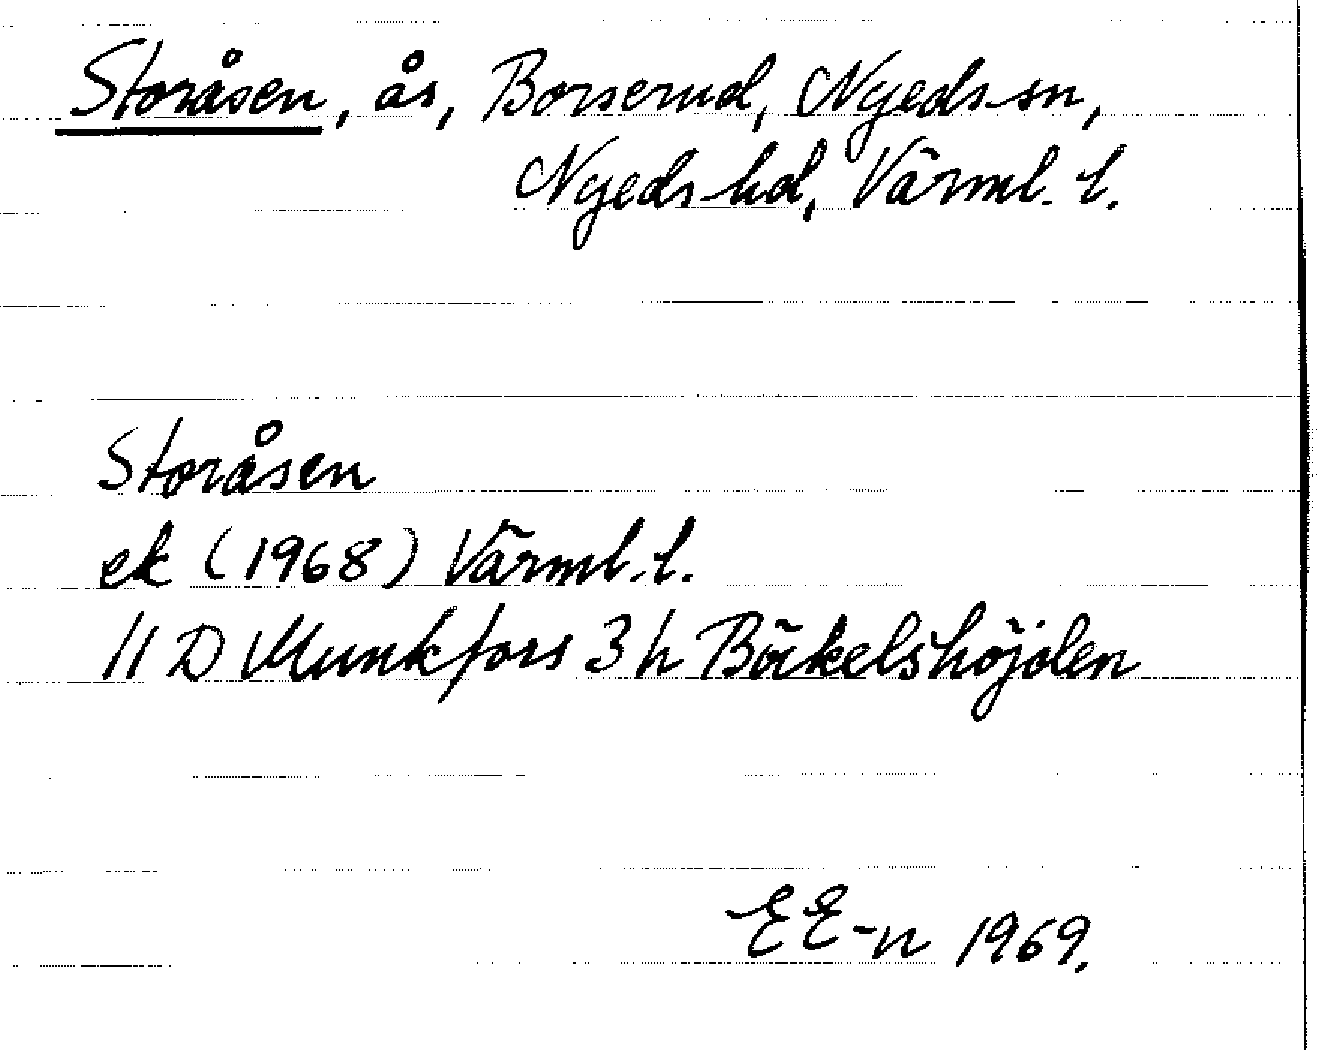 Storåsen, ås, Borserud, Nyeds sn,
Nyeds hd, Värml. l.
Storåsen
ek (1968) Värml. l.
11 D Munkfors 3 h Bökelshöjden
EE-n 1969.